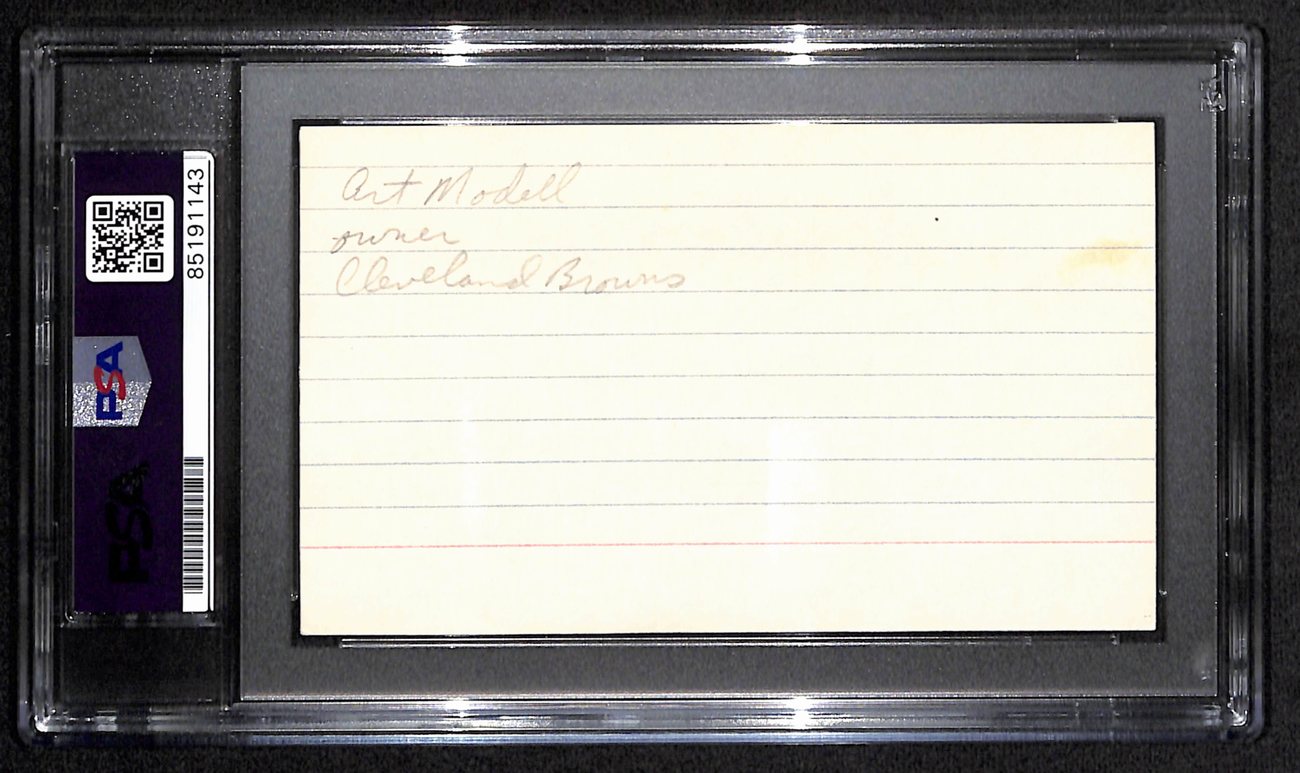 Art Modell
owner
Cleveland Browns
85191143
PSA
PSA